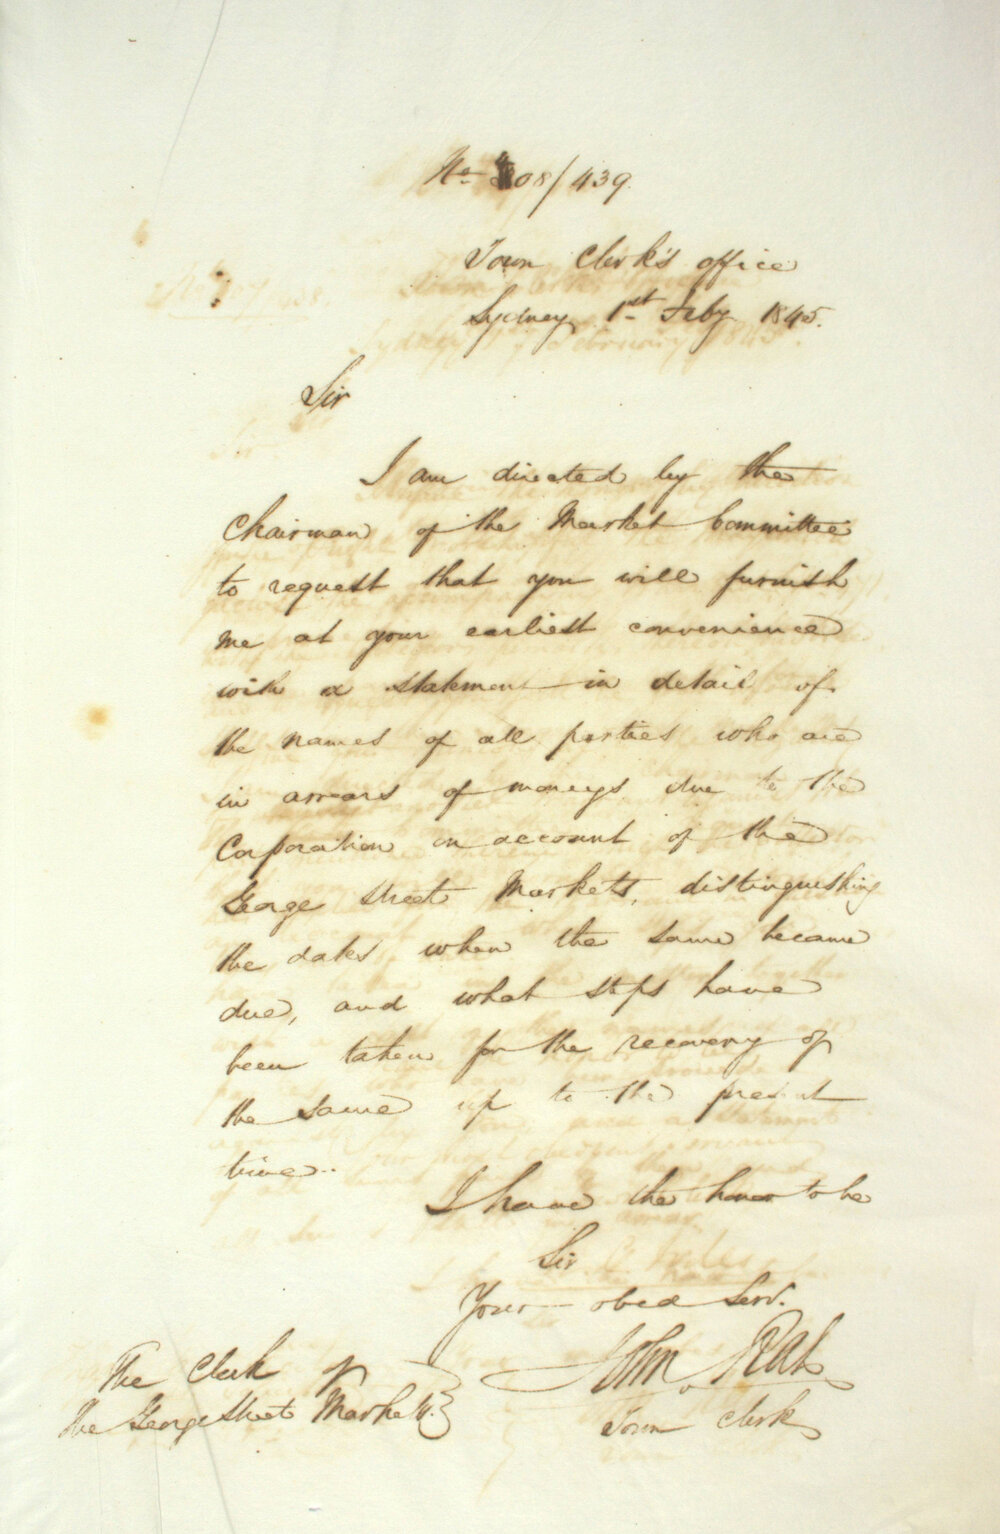 No 408/439
Town Clerk's office
Sydney 1st Feby 1845.
Sir
I am directed by the
Chairman of the Market Committee
to request that you will furnish
me at your earliest convenience
with a statement in detail of
the names of all parties who are
in arrears of moneys due to the
Corporation on account of the
George Street Markets, distinguishing
the dates when the same became
due, and what steps have
been taken for the recovery of
the same up to the present
time.
I have the honor to be
Sir
Your obed Servt.
John Rae
Town Clerk
The Clerk of
the George Street Markets.